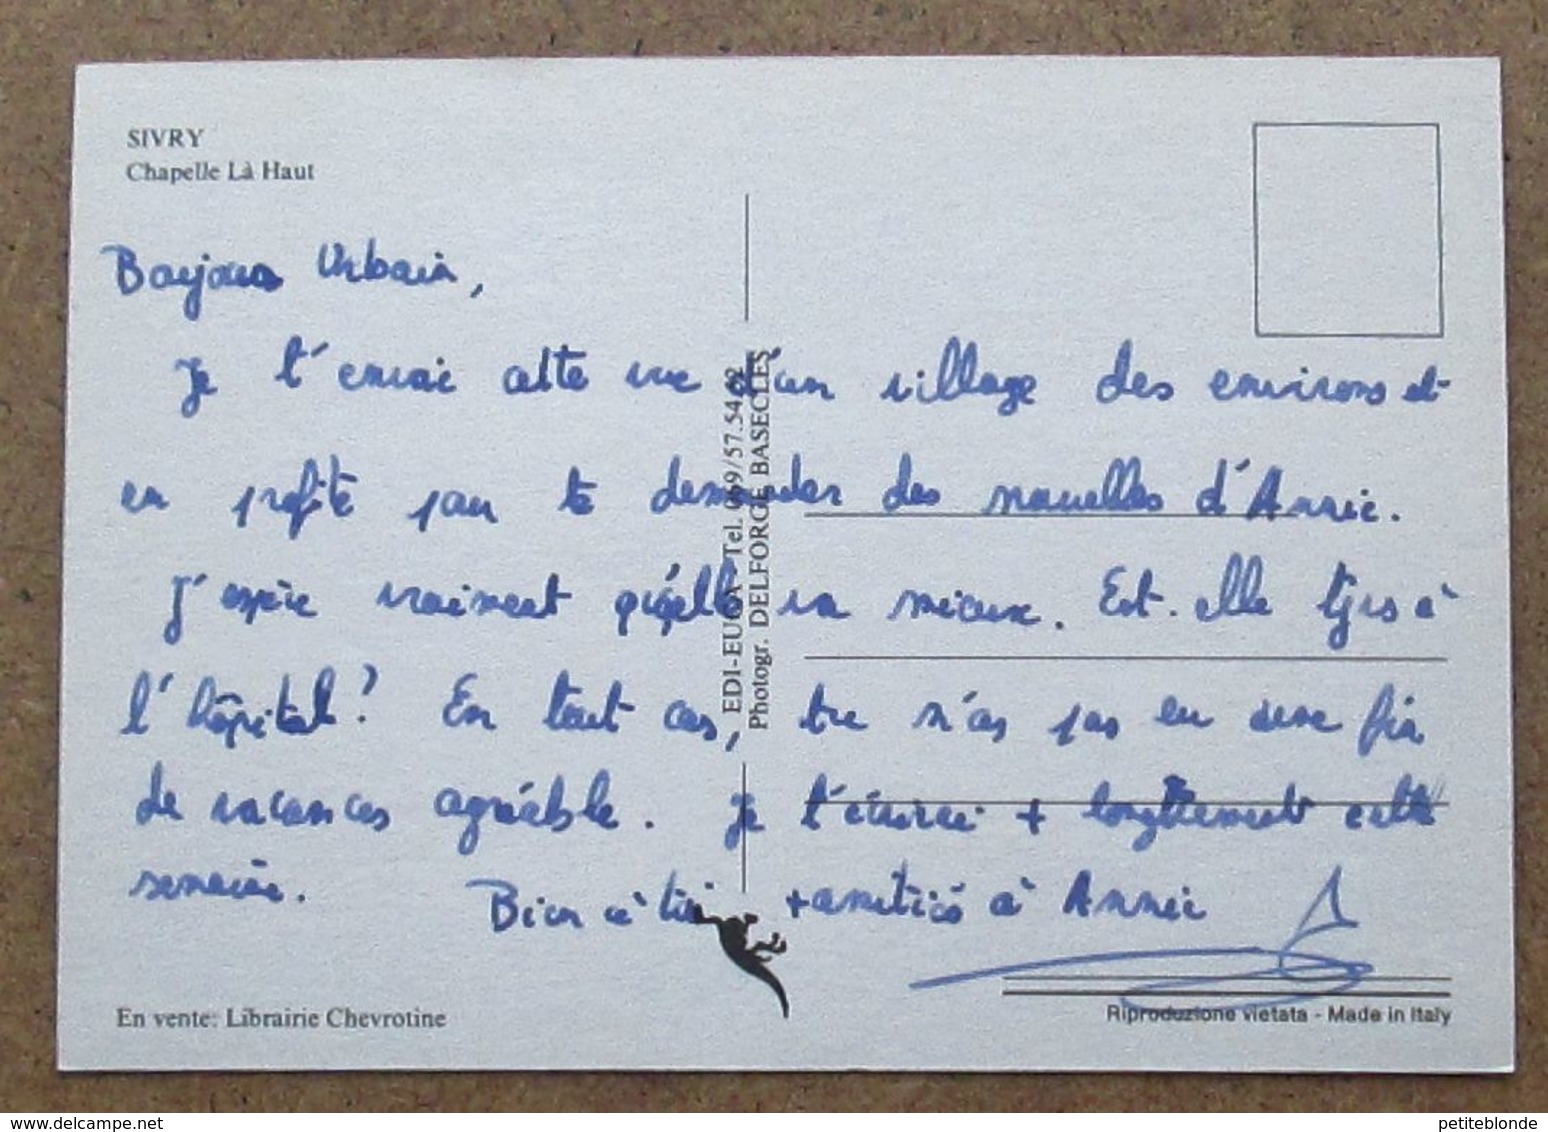 SIVRY
Chapelle Là Haut
Bonjour Urbain,
Je t'envoie cette vue d'un village des environs et
en profite pour te demander des nouvelles d'Annie.
J'espère vraiment qu'elle va mieux. Est-elle tjrs à
l'hôpital? En tout cas, tu n'as pas eu une fin
de vacances agréable. Je t'écrirai + longuement cette
semaine. Bien à toi + amitiés à Annie
EDI-EUGA - Tel. 069/57.54.62
Photogr. DELFORGE BASECLES
En vente: Librairie Chevrotine
Riproduzione vietata - Made in Italy
delcampe.net
petiteblonde